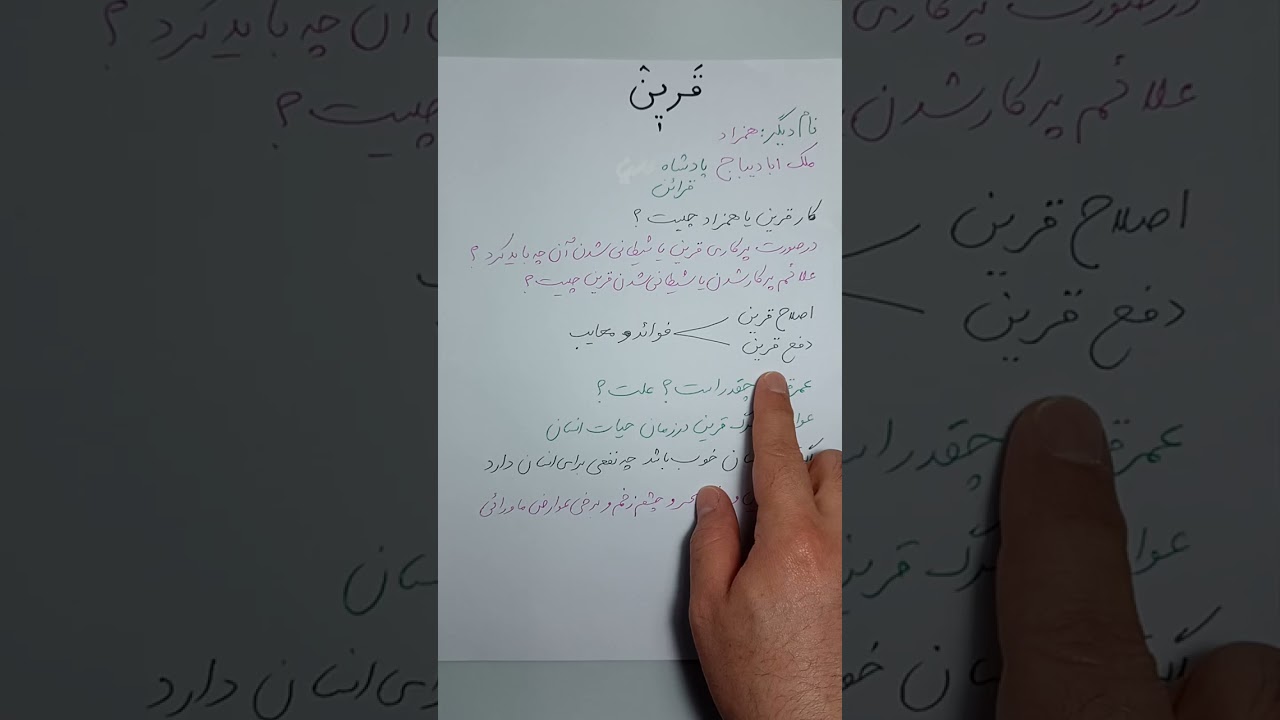 قَرینْ
نام دیگر: همزاد
ملک ابادیباج پادشاه
قرائن
کار قرین یا همزاد چیست ؟
درصورت پرکاری قرین یا شیطانی شدن آن چه باید کرد ؟
علائم پرکار شدن یا شیطانی شدن قرین چیست ؟
اصلاح قرین
دفع قرین
فوائد و معایب
چقدر است ؟ علت ؟
قرین در زمان حیات انسان
خوب باشد چه نفعی برای انسان دارد
و چشم زخم و برخی عوارض ماورائی